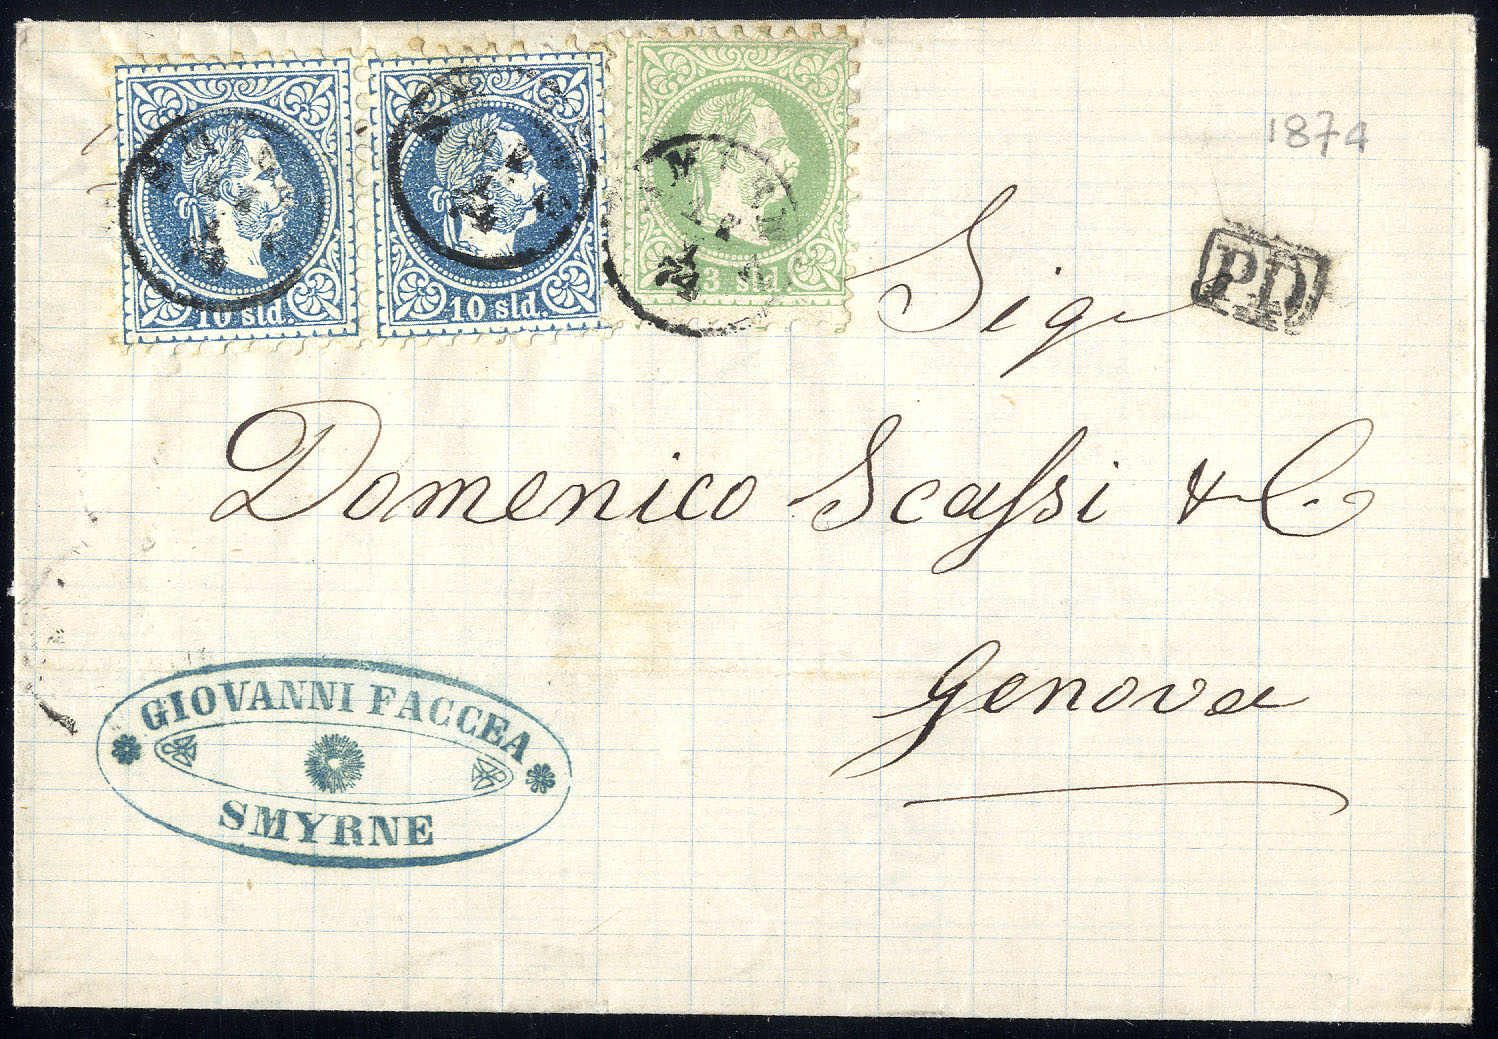 10 sld.
10 sld.
3 sld.
1874
PD
Sigr
Domenico Scassi & C.
Genova
GIOVANNI FACCEA
SMYRNE